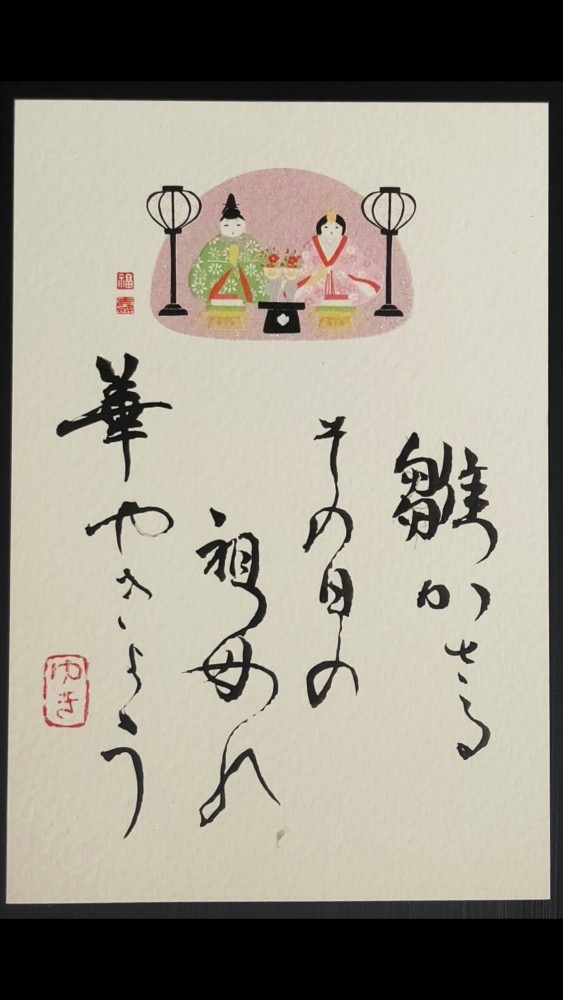 福
壽
雛かさる
その日の
祖母の
華やきよう
ゆき